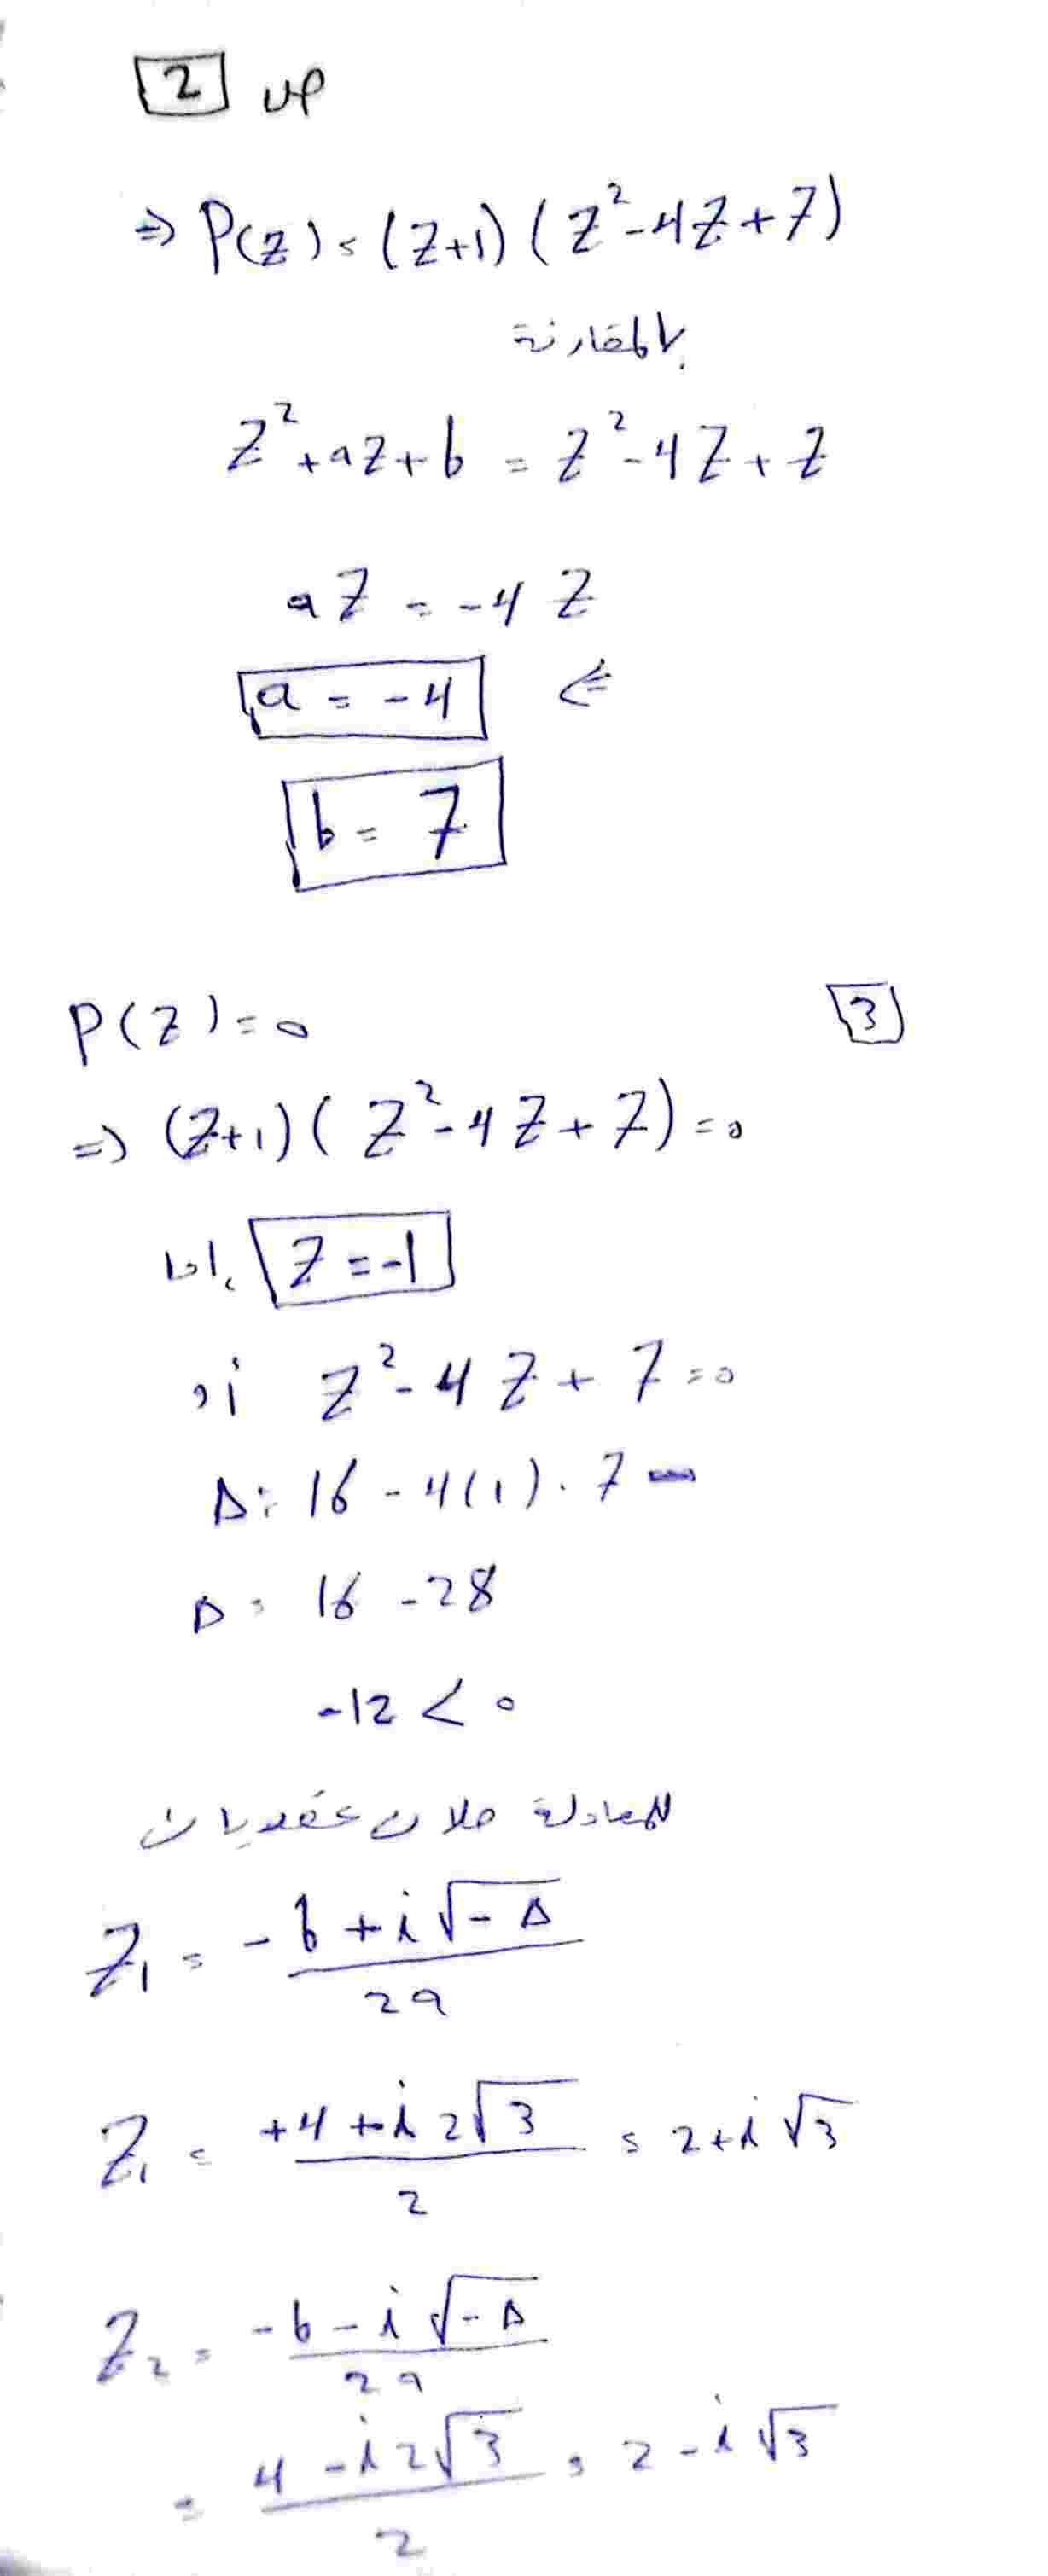 ص 2
⇒ P(z) = (z+1)(z²-4z+7)
بالمقارنة
z²+az+b = z²-4z+7
az = -4z
a = -4 ⇐
b = 7
3
P(z)=0
⇒ (z+1)(z²-4z+7)=0
إما z=-1
أو z²-4z+7=0
Δ = 16-4(1).7
Δ = 16-28
-12<0
للمعادلة حلان عقديان
z₁ = (-b+i√-Δ)/2a
z₁ = (+4+i2√3)/2 = 2+i√3
z₂ = (-b-i√-Δ)/2a
= (4-i2√3)/2 = 2-i√3